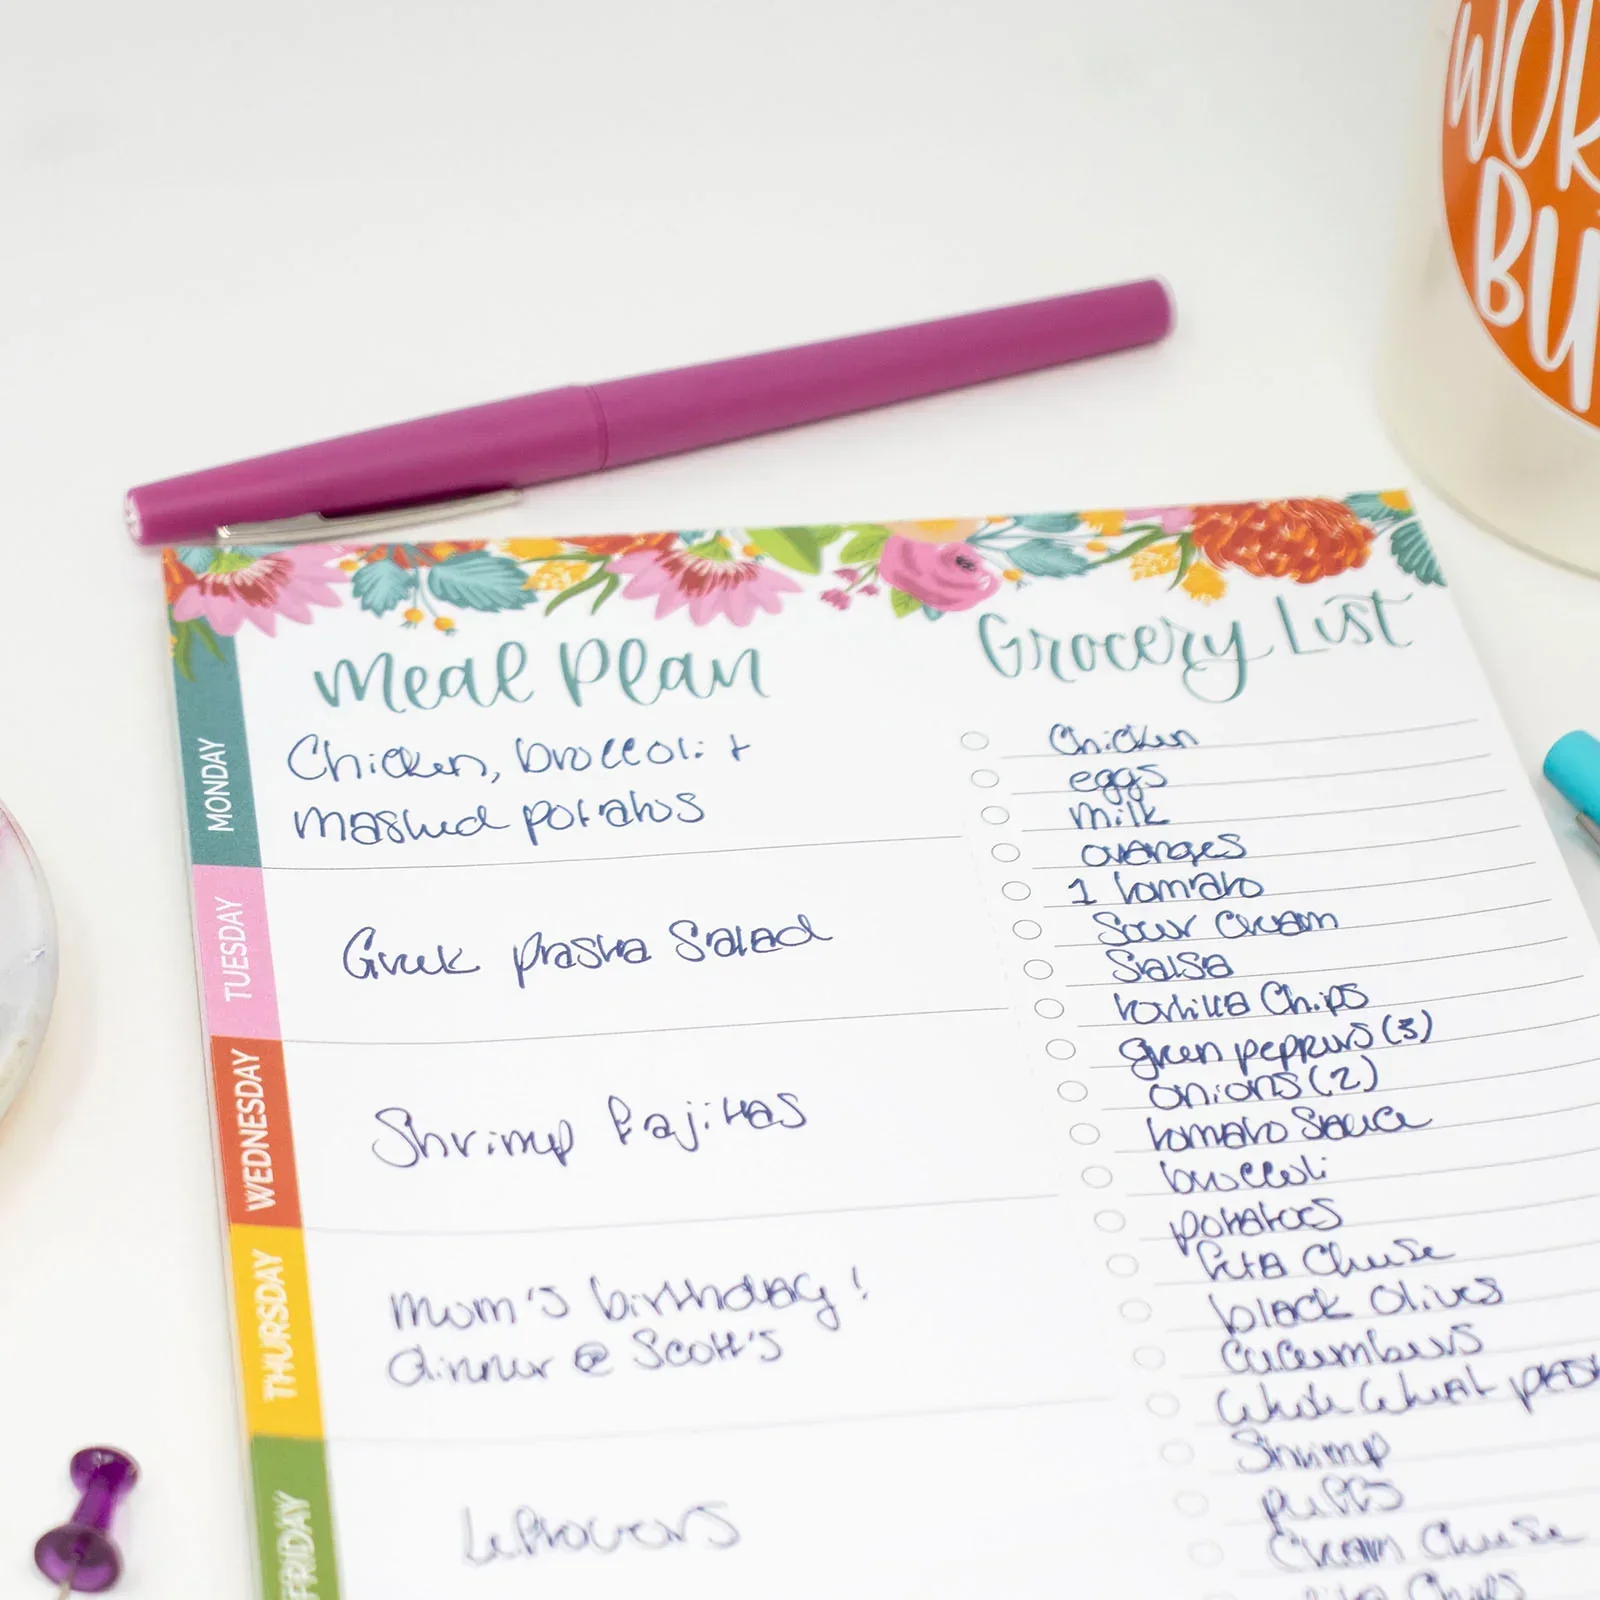 WOR
BU
Meal Plan
MONDAY
Chicken, broccoli +
mashed potatoes
TUESDAY
Greek pasta Salad
WEDNESDAY
Shrimp fajitas
THURSDAY
mom's birthday!
dinner @ Scott's
FRIDAY
Leftovers
Grocery List
Chicken
eggs
milk
oranges
1 tomato
Sour Cream
Salsa
tortilla Chips
green peppers (3)
onions (2)
tomato Sauce
broccoli
potatoes
feta Cheese
black Olives
Cucumbers
Whole Wheat
Shrimp
puffs
Cream Cheese
Chips